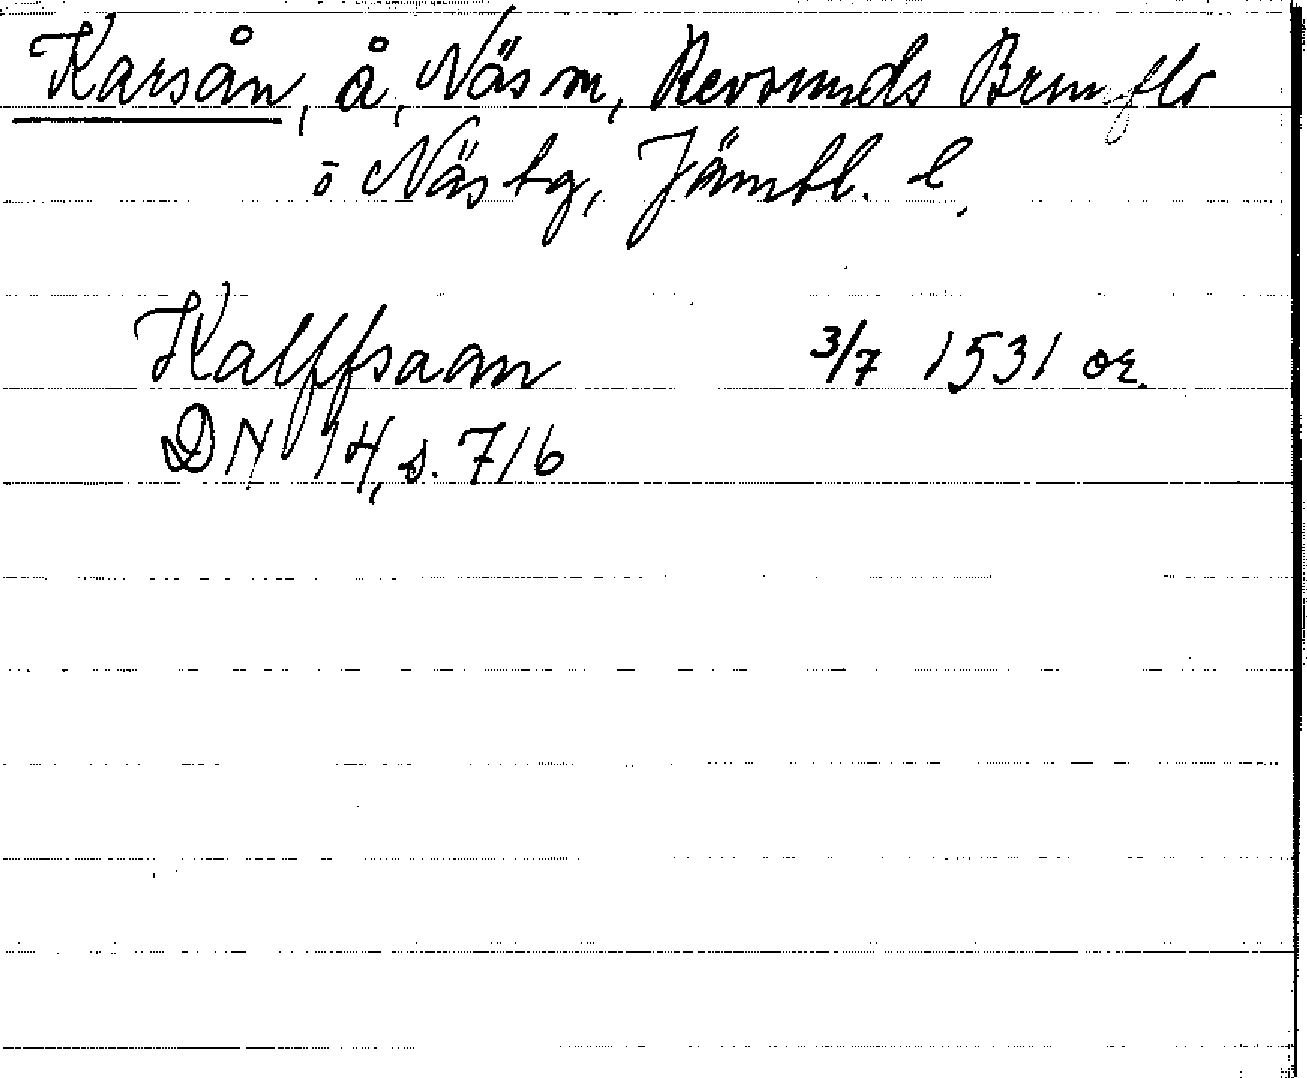 Karsån, å, Näs sn, Revsunds Brunflo
o Näs tg, Jämtl. l.
Kalffsaan 3/7 1531 or.
DN 14, s. 716